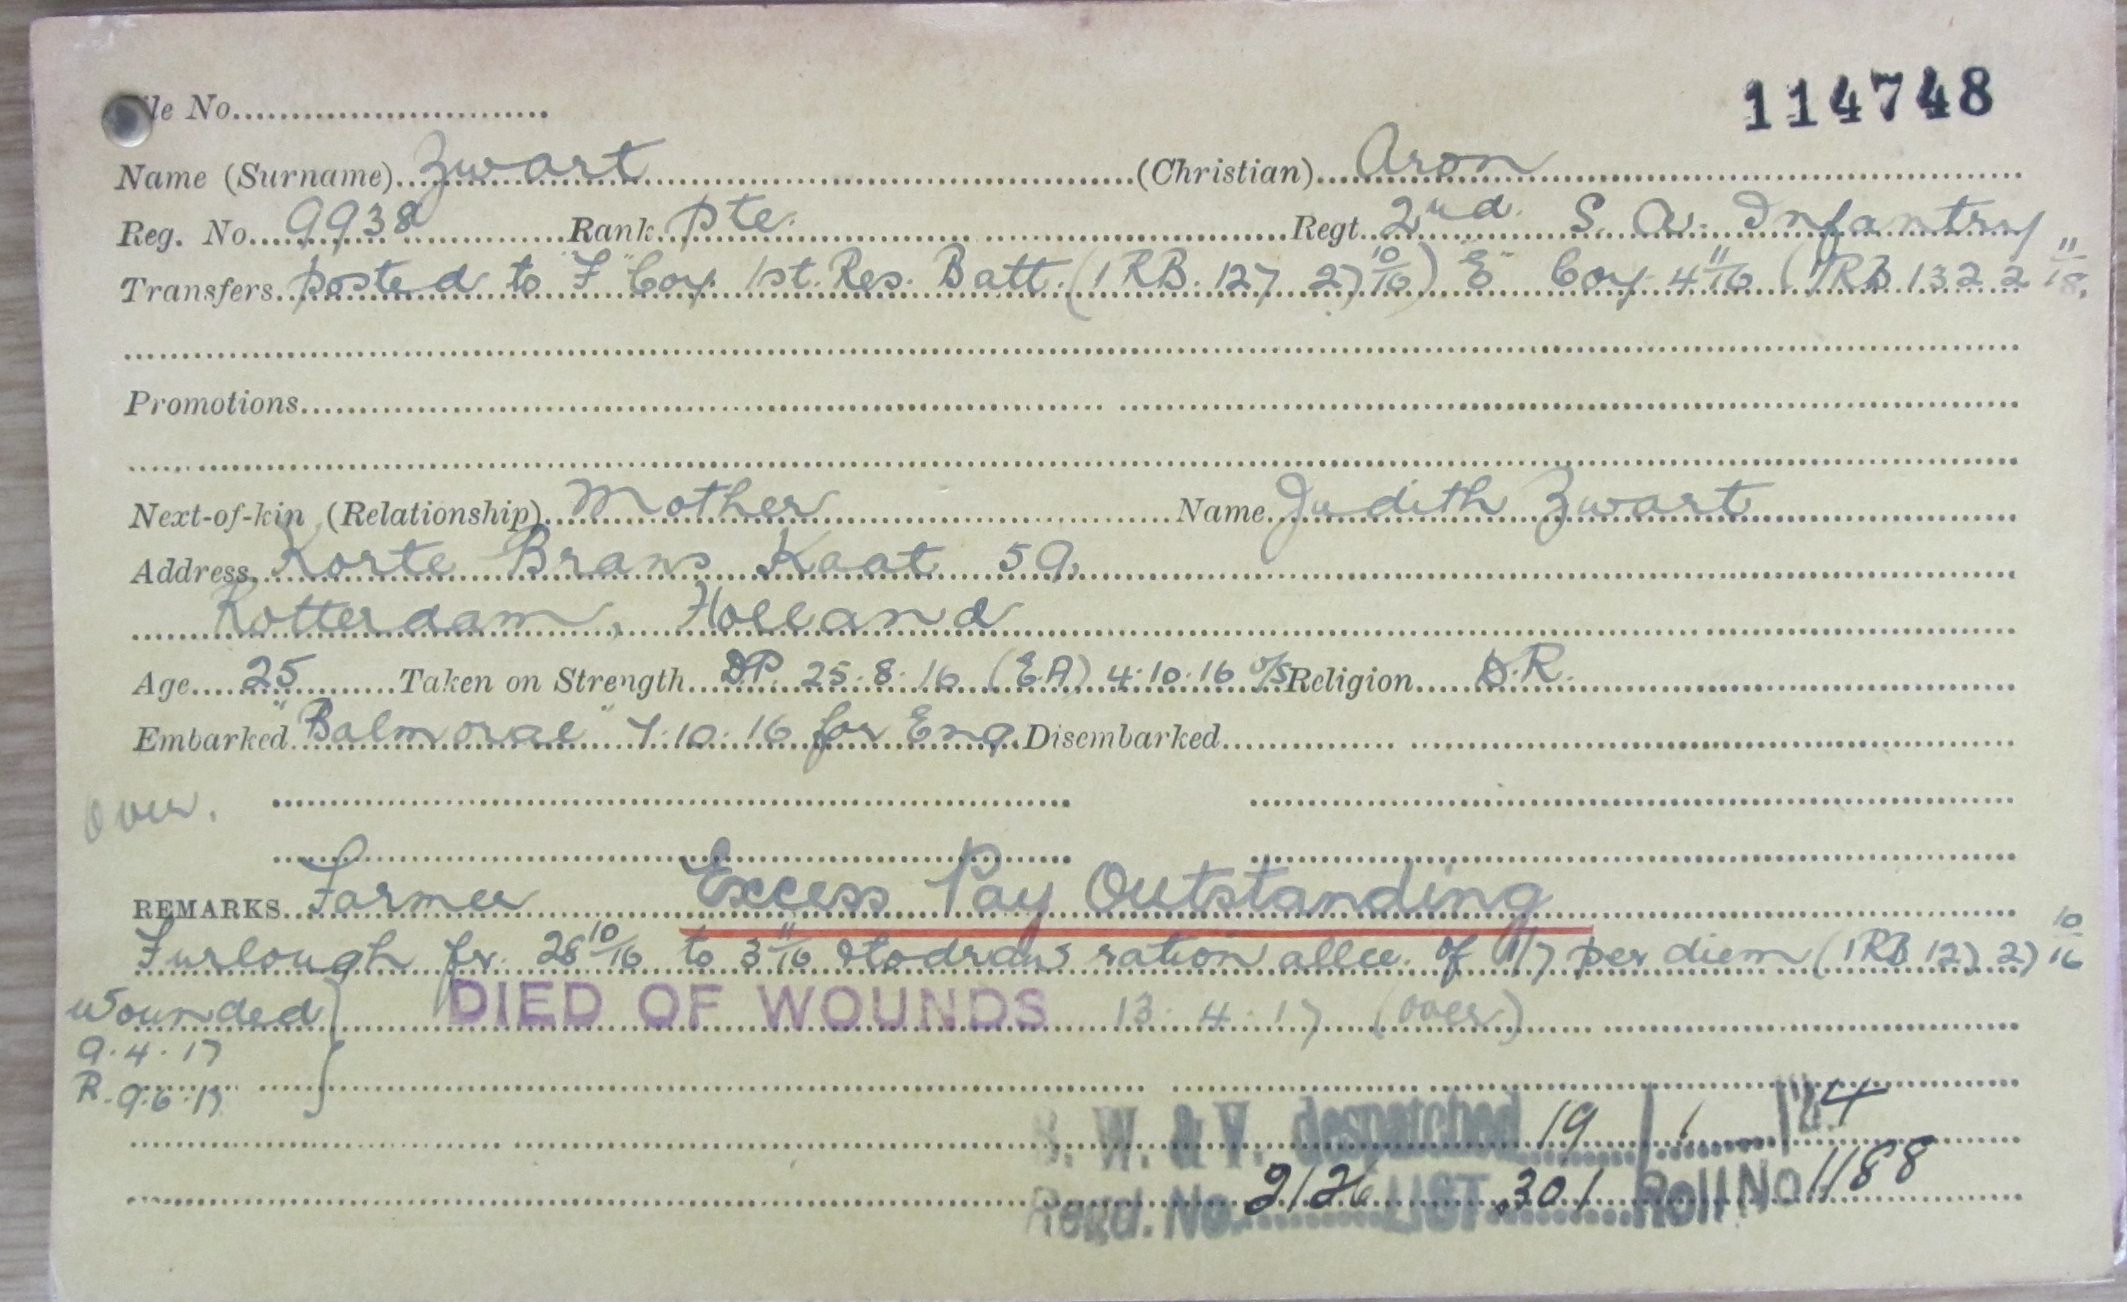 114748
File No.
Name (Surname) Zwart (Christian) Aron
Reg. No. 9938 Rank Pte. Regt. 2nd. S. A. Infantry
Transfers posted to "F" Coy. 1st. Res. Batt. (1 RB. 127 27 10/16) "E" Coy 4 11/16 (1RB 132 2 11/18.
Promotions
Next-of-kin (Relationship) Mother Name Judith Zwart
Address Korte Brans Kaat 59.
Rotterdam, Holland
Age 25 Taken on Strength DP. 25.8.16 (EA) 4.10.16 o/s Religion D.R.
Embarked "Balmoral" 7.10.16 for Eng. Disembarked
Over.
REMARKS Farmer Excess Pay Outstanding
Furlough fr. 28 10/16 to 3 11/16 & to draw ration allce. of 1/7 per diem (1RB 127 27 10/16
Wounded DIED OF WOUNDS 13.4.17 (over)
9.4.17
R. 9.6.17
B. W. & V. despatched 19/1/24
Regd. No. 2126 LIST 301 Roll No 1188